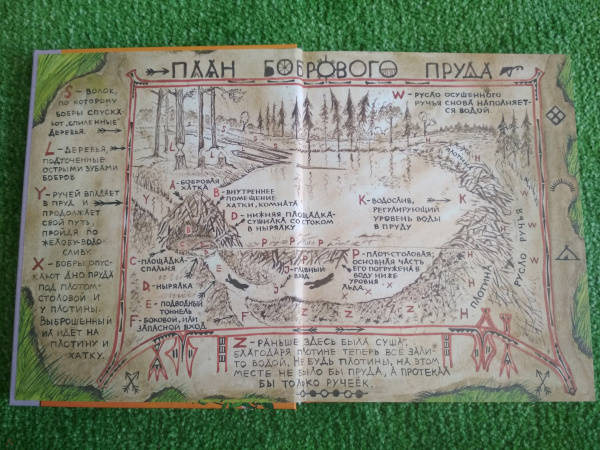 ПЛАН БОБРОВОГО ПРУДА
S - ВОЛОК,
ПО КОТОРОМУ
БОБРЫ СПУСКА-
ЮТ „СПИЛЕННЫЕ"
ДЕРЕВЬЯ.
L - ДЕРЕВЬЯ,
ПОДТОЧЕННЫЕ
ОСТРЫМИ ЗУБАМИ
БОБРОВ
Y - РУЧЕЙ ВПАДАЕТ
В ПРУД И
ПРОДОЛЖАЕТ
СВОЙ ПУТЬ,
ПРОЙДЯ ПО
ЖЕЛОБУ-ВОДО-
СЛИВУ.
X - БОБРЫ ОПУС-
КАЮТ ДНО ПРУДА
ПОД ПЛОТОМ-
СТОЛОВОЙ И
У ПЛОТИНЫ.
ВЫБРОШЕННЫЙ
ИЛ ИДЁТ НА
ПЛОТИНУ И
ХАТКУ.
W - РУСЛО ОСУШЕННОГО
РУЧЬЯ СНОВА НАПОЛНЯЕТ-
СЯ ВОДОЙ.
A - БОБРОВАЯ
ХАТКА
B - ВНУТРЕННЕЕ
ПОМЕЩЕНИЕ
ХАТКИ, КОМНАТА
D - НИЖНЯЯ ПЛОЩАДКА-
СУШИЛКА СО СТОКОМ
В НЫРЯЛКУ
K - ВОДОСЛИВ,
РЕГУЛИРУЮЩИЙ
УРОВЕНЬ ВОДЫ
В ПРУДУ
C - ПЛОЩАДКА-
СПАЛЬНЯ
D - НЫРЯЛКА
E - ПОДВОДНЫЙ
ТОННЕЛЬ
F - БОКОВОЙ, ИЛИ
ЗАПАСНОЙ ВХОД
J - ГЛАВНЫЙ
ВХОД
P - ПЛОТ-СТОЛОВАЯ;
ОСНОВНАЯ ЧАСТЬ
ЕГО ПОГРУЖЕНА В
ВОДУ НИЖЕ
УРОВНЯ
ЛЬДА
ПЛОТИНА
ПЛОТИНА
РУСЛО РУЧЬЯ
Z - РАНЬШЕ ЗДЕСЬ БЫЛА СУША.
БЛАГОДАРЯ ПЛОТИНЕ ТЕПЕРЬ ВСЁ ЗАЛИ-
ТО ВОДОЙ. НЕ БУДЬ ПЛОТИНЫ, НА ЭТОМ
МЕСТЕ НЕ БЫЛО БЫ ПРУДА, А ПРОТЕКАЛ
БЫ ТОЛЬКО РУЧЕЁК.